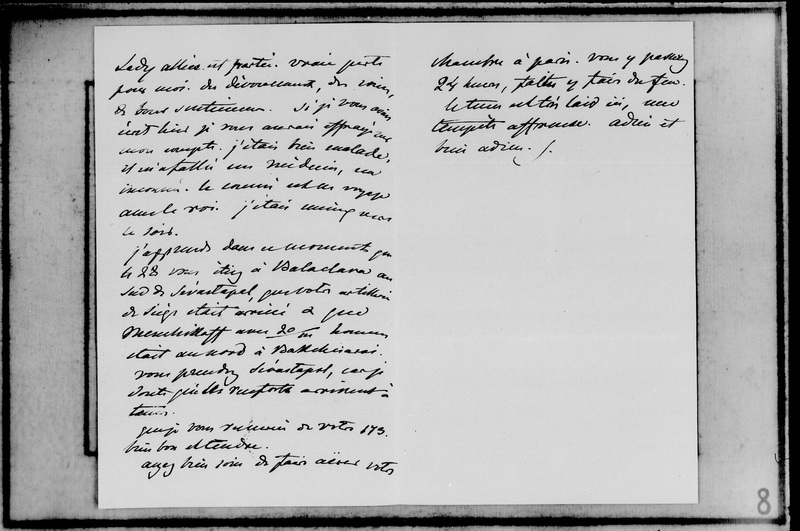 Lady Alice est partie. vraie perte
pour moi. du dévouement, des soins,
de bons sentimens. Si je vous avais
écrit hier je vous aurais effrayé sur
mon compte. j'étais bien malade,
il m'a fallu un médecin, un
inconnu. le connu est en voyage
avec le roi. j'étais mieux
le soir.
j'apprends dans ce moment que
le 28 vous étiez à Balaclava au
sud de Sévastopol, que votre artillerie
de siège était arrivée & que
Menchikoff avec 20/m hommes
était au nord à Baktchisarai.
vous prendrez Sévastopol, car je
doute que les renforts arrivent à
tems.
que je vous remercie de votre 173.
bien bon et tendre.
ayez bien soin de faire aërer votre
chambre à paris. vous y passerez
24 heures, faites y faire du feu.
le tems est très laid ici, une
tempête affreuse. adieu et
bien adieu.
8